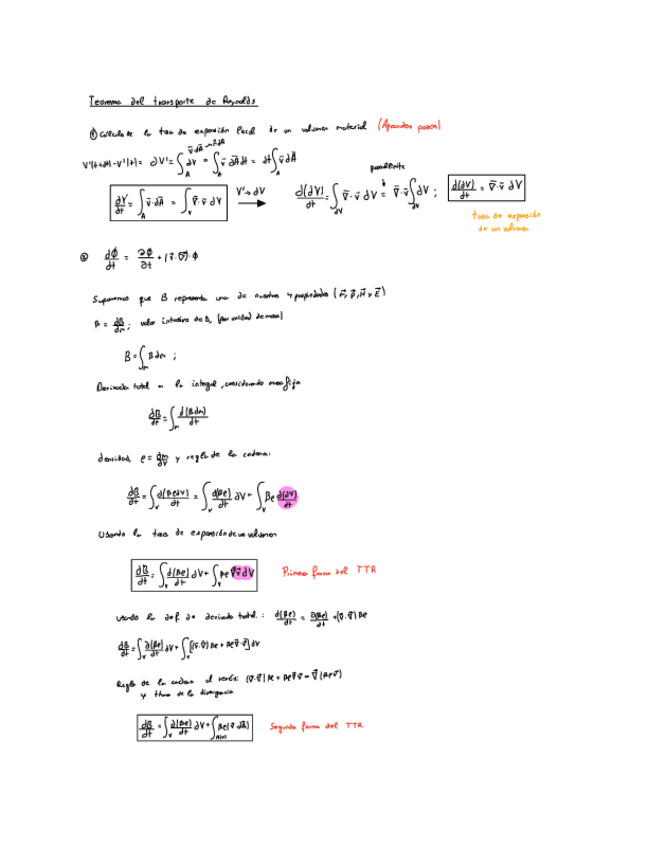 Teorema del transporte de Reynolds
① Calcula la tasa de expansión local de un volumen material (Aprender pasos)
V'(t+dt) - V'(t) = dV' = ∫_A dV = ∫_A v⃗·dA⃗ dt = dt ∫_A v⃗·dA⃗
dV'/dt = ∫_A v⃗·dA⃗ = ∫_V ∇⃗·v⃗ dV
V' → dV
d(dV)/dt = ∫_dV ∇⃗·v⃗ dV = ∇⃗·v⃗ ∫_dV dV ;
d(dV)/dt = ∇⃗·v⃗ dV
tasa de expansión
de un volumen
② dΦ/dt = ∂Φ/∂t + (v⃗·∇⃗)·Φ
Suponemos que B representa una de nuestras 4 propiedades (m, p⃗, H⃗ y E)
β = dB/dm ; valor intensivo de B, (por unidad de masa)
B = ∫_m β dm ;
Derivada total en la integral, considerando masa fija
dB/dt = ∫_m d(βdm)/dt
densidad, ρ = dm/dV y regla de la cadena:
dB/dt = ∫_V d(βρdV)/dt = ∫_V d(βρ)/dt dV + ∫_V βρ d(dV)/dt
Usando la tasa de expansión de un volumen
dB/dt = ∫_V d(βρ)/dt dV + ∫_V βρ ∇⃗·v⃗ dV Primera forma del TTR
usando la def. de derivada total: d(βρ)/dt = ∂(βρ)/∂t + (v⃗·∇⃗) βρ
dB/dt = ∫_V ∂(βρ)/∂t dV + ∫_V [(v⃗·∇⃗) βρ + βρ ∇⃗·v⃗] dV
Regla de la cadena al revés: (v⃗·∇⃗) βρ + βρ ∇⃗·v⃗ = ∇⃗(βρv⃗)
y thma de la divergencia
dB/dt = ∫_V ∂(βρ)/∂t dV + ∫_A(t) βρ (v⃗·dA⃗) Segunda forma del TTR